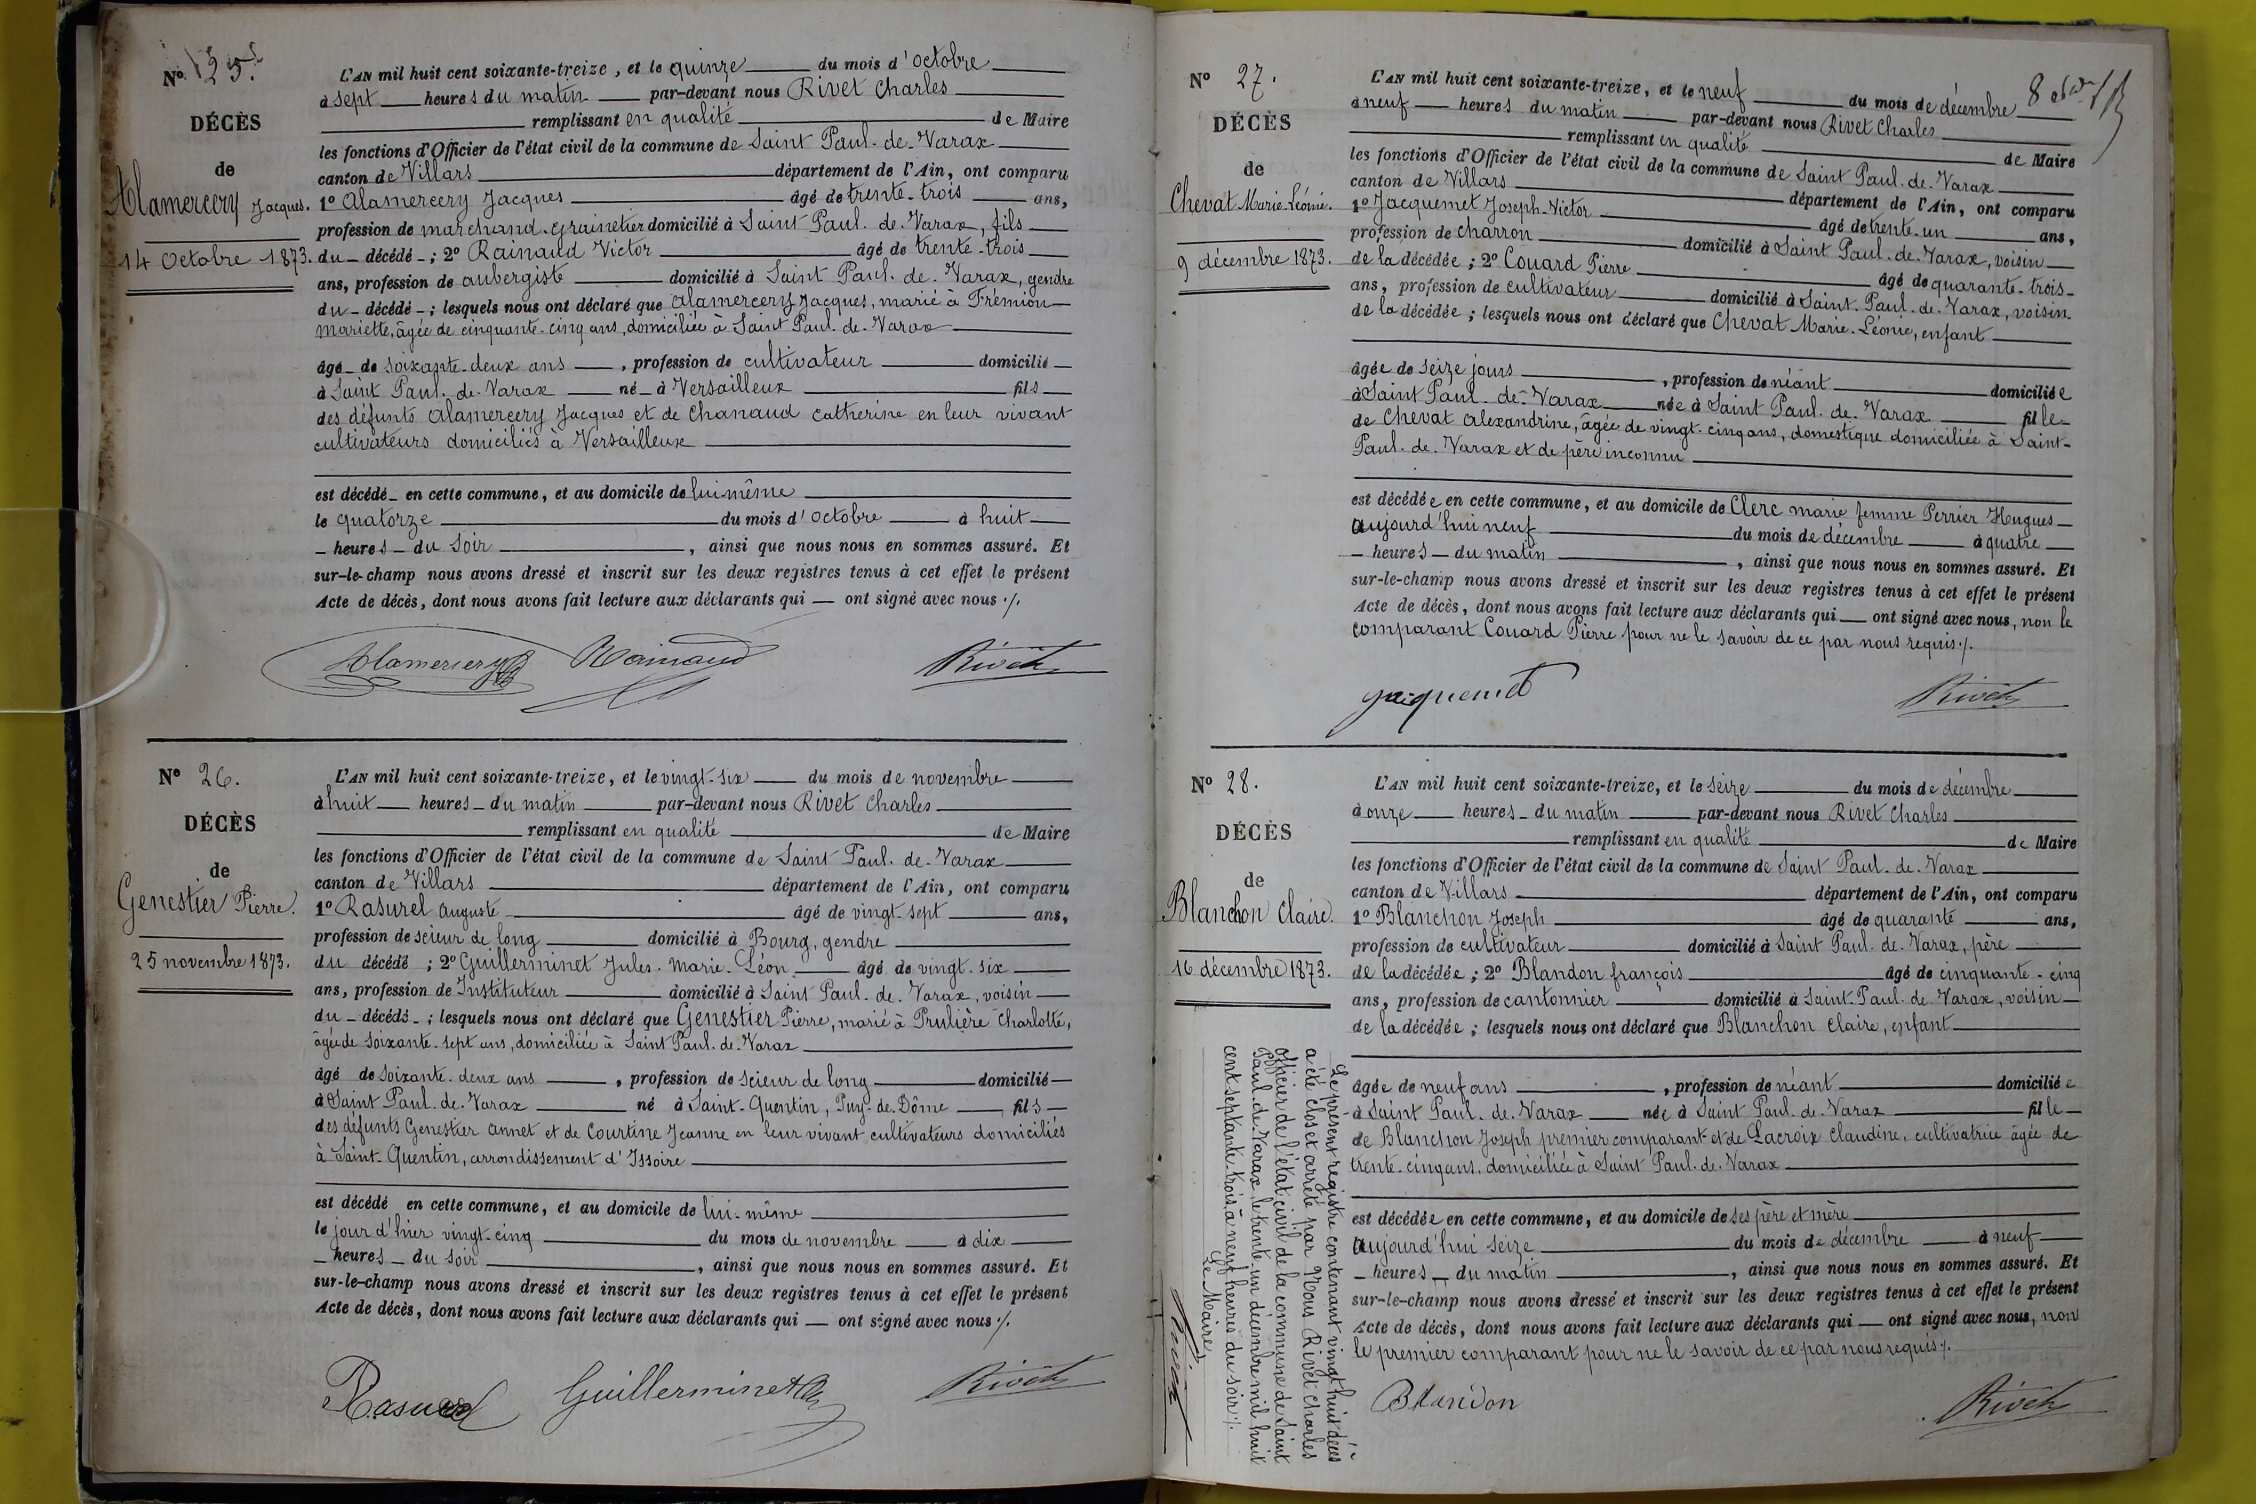 N° 25.
DÉCÈS
de
Alamercery Jacques.
14 Octobre 1873.
L'AN mil huit cent soixante-treize, et le quinze du mois d'octobre
à sept heures du matin par-devant nous Rivet Charles
remplissant en qualité de Maire
les fonctions d'Officier de l'état civil de la commune de Saint Paul-de-Varax
canton de Villars département de l'Ain, ont comparu
1° Alamercery Jacques âgé de trente-trois ans,
profession de marchand-grainetier domicilié à Saint Paul-de-Varax, fils
du décédé ; 2° Rainaud Victor âgé de trente-trois
ans, profession de aubergiste domicilié à Saint Paul-de-Varax, gendre
du décédé ; lesquels nous ont déclaré que Alamercery Jacques, marié à Frémion
Mariette, âgée de cinquante-cinq ans, domiciliée à Saint Paul-de-Varax
âgé de soixante-deux ans, profession de cultivateur domicilié
à Saint Paul-de-Varax né à Versailleux fils
des défunts Alamercery Jacques et de Chanaud Catherine en leur vivant
cultivateurs domiciliés à Versailleux
est décédé en cette commune, et au domicile de lui-même
le quatorze du mois d'octobre à huit
heures du soir, ainsi que nous nous en sommes assuré. Et
sur-le-champ nous avons dressé et inscrit sur les deux registres tenus à cet effet le présent
Acte de décès, dont nous avons fait lecture aux déclarants qui ont signé avec nous ./.
Alamercery Rainaud Rivet
N° 26.
DÉCÈS
de
Genestier Pierre.
25 novembre 1873.
L'AN mil huit cent soixante-treize, et le vingt-six du mois de novembre
à huit heures du matin par-devant nous Rivet Charles
remplissant en qualité de Maire
les fonctions d'Officier de l'état civil de la commune de Saint Paul-de-Varax
canton de Villars département de l'Ain, ont comparu
1° Rasurel Auguste âgé de vingt-sept ans,
profession de scieur de long domicilié à Bourg, gendre
du décédé ; 2° Guillerminet Jules-Marie-Léon âgé de vingt-six
ans, profession de Instituteur domicilié à Saint Paul-de-Varax, voisin
du décédé ; lesquels nous ont déclaré que Genestier Pierre, marié à Prulière Charlotte,
âgée de soixante-sept ans, domiciliée à Saint Paul-de-Varax
âgé de soixante-deux ans, profession de scieur de long domicilié
à Saint Paul-de-Varax né à Saint-Quentin, Puy-de-Dôme fils
des défunts Genestier Annet et de Courtine Jeanne en leur vivant cultivateurs domiciliés
à Saint-Quentin, arrondissement d'Issoire
est décédé en cette commune, et au domicile de lui-même
le jour d'hier vingt-cinq du mois de novembre à dix
heures du soir, ainsi que nous nous en sommes assuré. Et
sur-le-champ nous avons dressé et inscrit sur les deux registres tenus à cet effet le présent
Acte de décès, dont nous avons fait lecture aux déclarants qui ont signé avec nous ./.
Rasurel Guillerminet Rivet
N° 27.
DÉCÈS
de
Chevat Marie-Léonie.
9 décembre 1873.
L'AN mil huit cent soixante-treize, et le neuf du mois de décembre
à neuf heures du matin par-devant nous Rivet Charles
remplissant en qualité de Maire
les fonctions d'Officier de l'état civil de la commune de Saint Paul-de-Varax
canton de Villars département de l'Ain, ont comparu
1° Jacquemet Joseph-Victor âgé de trente-un ans,
profession de charron domicilié à Saint Paul-de-Varax, voisin
de la décédée ; 2° Couard Pierre âgé de quarante-trois
ans, profession de cultivateur domicilié à Saint-Paul-de-Varax, voisin
de la décédée ; lesquels nous ont déclaré que Chevat Marie-Léonie, enfant
âgée de seize jours, profession de néant domiciliée
à Saint Paul-de-Varax née à Saint Paul-de-Varax fille
de Chevat Alexandrine, âgée de vingt-cinq ans, domestique domiciliée à Saint-
Paul-de-Varax et de père inconnu
est décédée en cette commune, et au domicile de Clerc Marie femme Perrier Hugues
aujourd'hui neuf du mois de décembre à quatre
heures du matin, ainsi que nous nous en sommes assuré. Et
sur-le-champ nous avons dressé et inscrit sur les deux registres tenus à cet effet le présent
Acte de décès, dont nous avons fait lecture aux déclarants qui ont signé avec nous, non le
comparant Couard Pierre pour ne le savoir de ce par nous requis ./.
Jacquemet Rivet
N° 28.
DÉCÈS
de
Blanchon Claire.
16 décembre 1873.
L'AN mil huit cent soixante-treize, et le seize du mois de décembre
à onze heures du matin par-devant nous Rivet Charles
remplissant en qualité de Maire
les fonctions d'Officier de l'état civil de la commune de Saint Paul-de-Varax
canton de Villars département de l'Ain, ont comparu
1° Blanchon Joseph âgé de quarante ans,
profession de cultivateur domicilié à Saint Paul-de-Varax, père
de la décédée ; 2° Blandon françois âgé de cinquante-cinq
ans, profession de cantonnier domicilié à Saint-Paul-de-Varax, voisin
de la décédée ; lesquels nous ont déclaré que Blanchon Claire, enfant
âgée de neuf ans, profession de néant domiciliée
à Saint Paul-de-Varax née à Saint Paul-de-Varax fille
de Blanchon Joseph premier comparant et de Lacroix Claudine, cultivatrice âgée de
trente-cinq ans, domiciliée à Saint Paul-de-Varax
est décédée en cette commune, et au domicile de ses père et mère
aujourd'hui seize du mois de décembre à neuf
heures du matin, ainsi que nous nous en sommes assuré. Et
sur-le-champ nous avons dressé et inscrit sur les deux registres tenus à cet effet le présent
Acte de décès, dont nous avons fait lecture aux déclarants qui ont signé avec nous, non
le premier comparant pour ne le savoir de ce par nous requis ./.
Blandon Rivet
Le présent registre contenant vingt huit décès
a été clos et arrêté par Nous Rivet Charles
officier de l'état civil de la commune de Saint
Paul-de-Varax, le trente-un décembre mil huit
cent septante-trois, à neuf heures du soir ./.
Le Maire,
Rivet